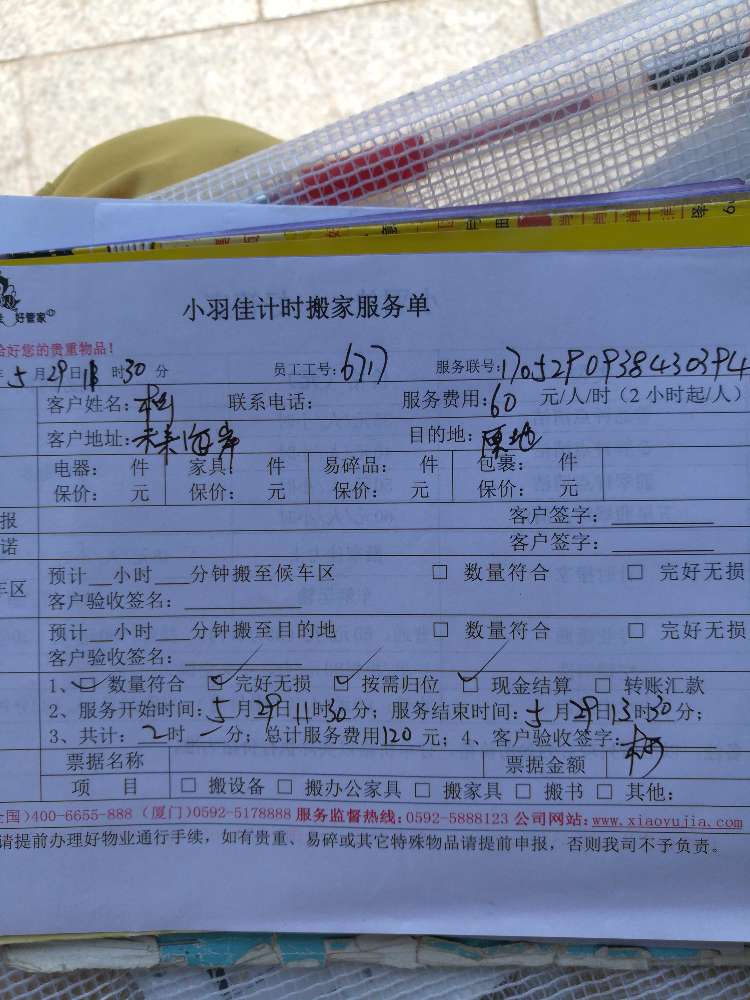 好管家
小羽佳计时搬家服务单
恰好您的贵重物品!
5月29日11时30分 员工工号:6717 服务联号:1705290938430394
客户姓名: 联系电话: 服务费用:60 元/人/时(2小时起/人)
客户地址:未来海岸 目的地:原地
电器: 件 家具: 件 易碎品: 件 包裹: 件
保价: 元 保价: 元 保价: 元 保价: 元
报 客户签字:
诺 客户签字:
预计__小时___分钟搬至候车区 □ 数量符合 □ 完好无损
车区 客户验收签名:
预计__小时___分钟搬至目的地 □ 数量符合 □ 完好无损
客户验收签名:
1、☑ 数量符合 ☑ 完好无损 ☑ 按需归位 ☑ 现金结算 □ 转账汇款
2、服务开始时间:5月29日11时30分;服务结束时间:5月29日13时30分;
3、共计:2时-分;总计服务费用120元;4、客户验收签字:
票据名称 票据金额
项 目 □ 搬设备 □ 搬办公家具 □ 搬家具 □ 搬书 □ 其他:
全国)400-6655-888 (厦门)0592-5178888 服务监督热线:0592-5888123 公司网站:www.xiaoyujia.com
请提前办理好物业通行手续,如有贵重、易碎或其它特殊物品请提前申报,否则我司不予负责。